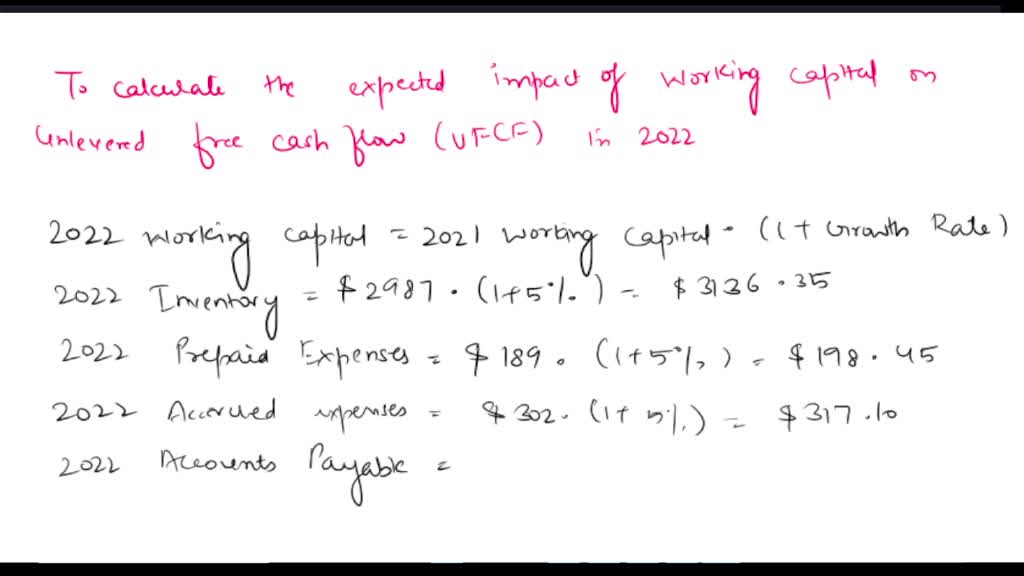 To calculate the expected impact of working capital on
Unlevered free cash flow (UFCF) in 2022
2022 working capital = 2021 working capital · (1 + Growth Rate)
2022 Inventory = $2987 · (1+5%) = $3136.35
2022 Prepaid Expenses = $189 · (1+5%) = $198.45
2022 Accrued expenses = $302 · (1+5%) = $317.10
2022 Accounts Payable =